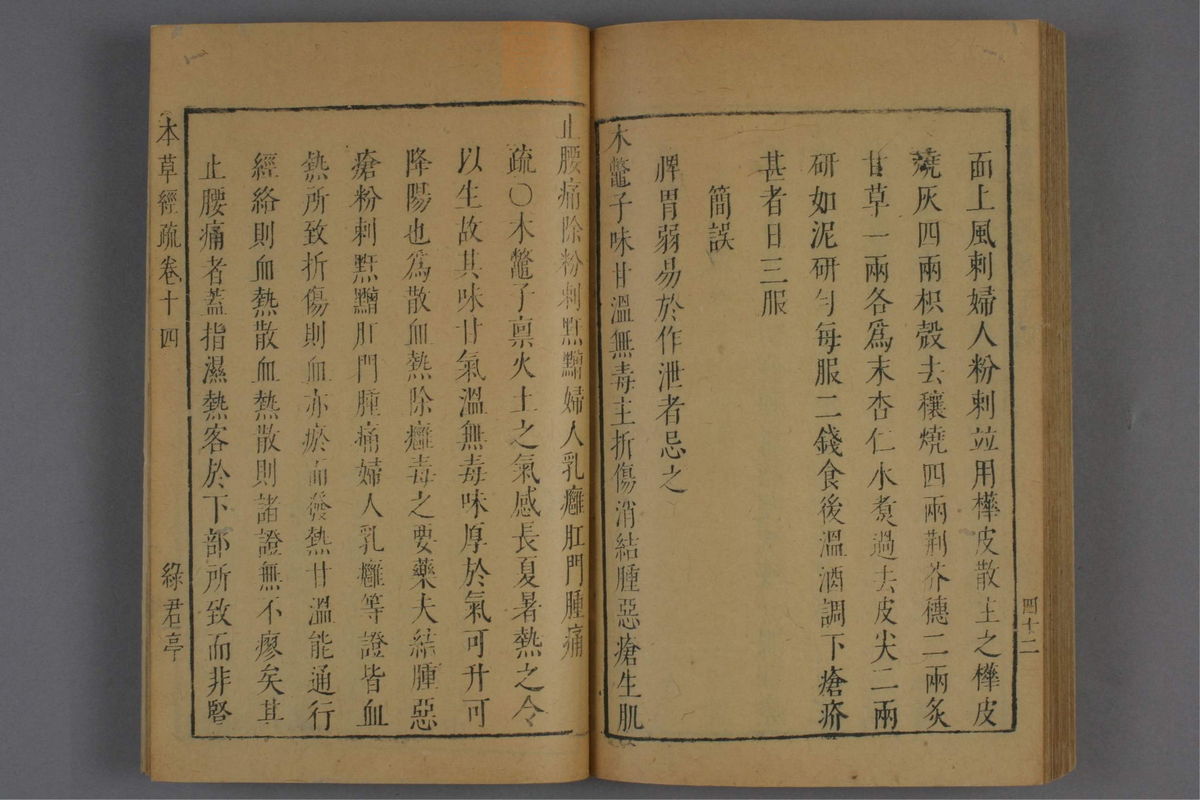 面上風刺婦人粉刺並用樺皮散主之樺皮
燒灰四兩枳殼去穰燒四兩荆芥穗二兩炙
甘草一兩各爲末杏仁水煑過去皮尖二兩
研如泥研勻每服二錢食後溫酒調下瘡疥
甚者日三服
簡誤
脾胃弱易於作泄者忌之
木鼈子味甘溫無毒主折傷消結腫惡瘡生肌
四十二
止腰痛除粉刺䵟䵳婦人乳癰肛門腫痛
疏○木鼈子禀火土之氣感長夏暑熱之令
以生故其味甘氣溫無毒味厚於氣可升可
降陽也爲散血熱除癰毒之要藥夫結腫惡
瘡粉刺䵟䵳肛門腫痛婦人乳癰等證皆血
熱所致折傷則血亦瘀而發熱甘溫能通行
經絡則血熱散血熱散則諸證無不瘳矣其
止腰痛者蓋指濕熱客於下部所致而非腎
本草經疏卷十四
綠君亭